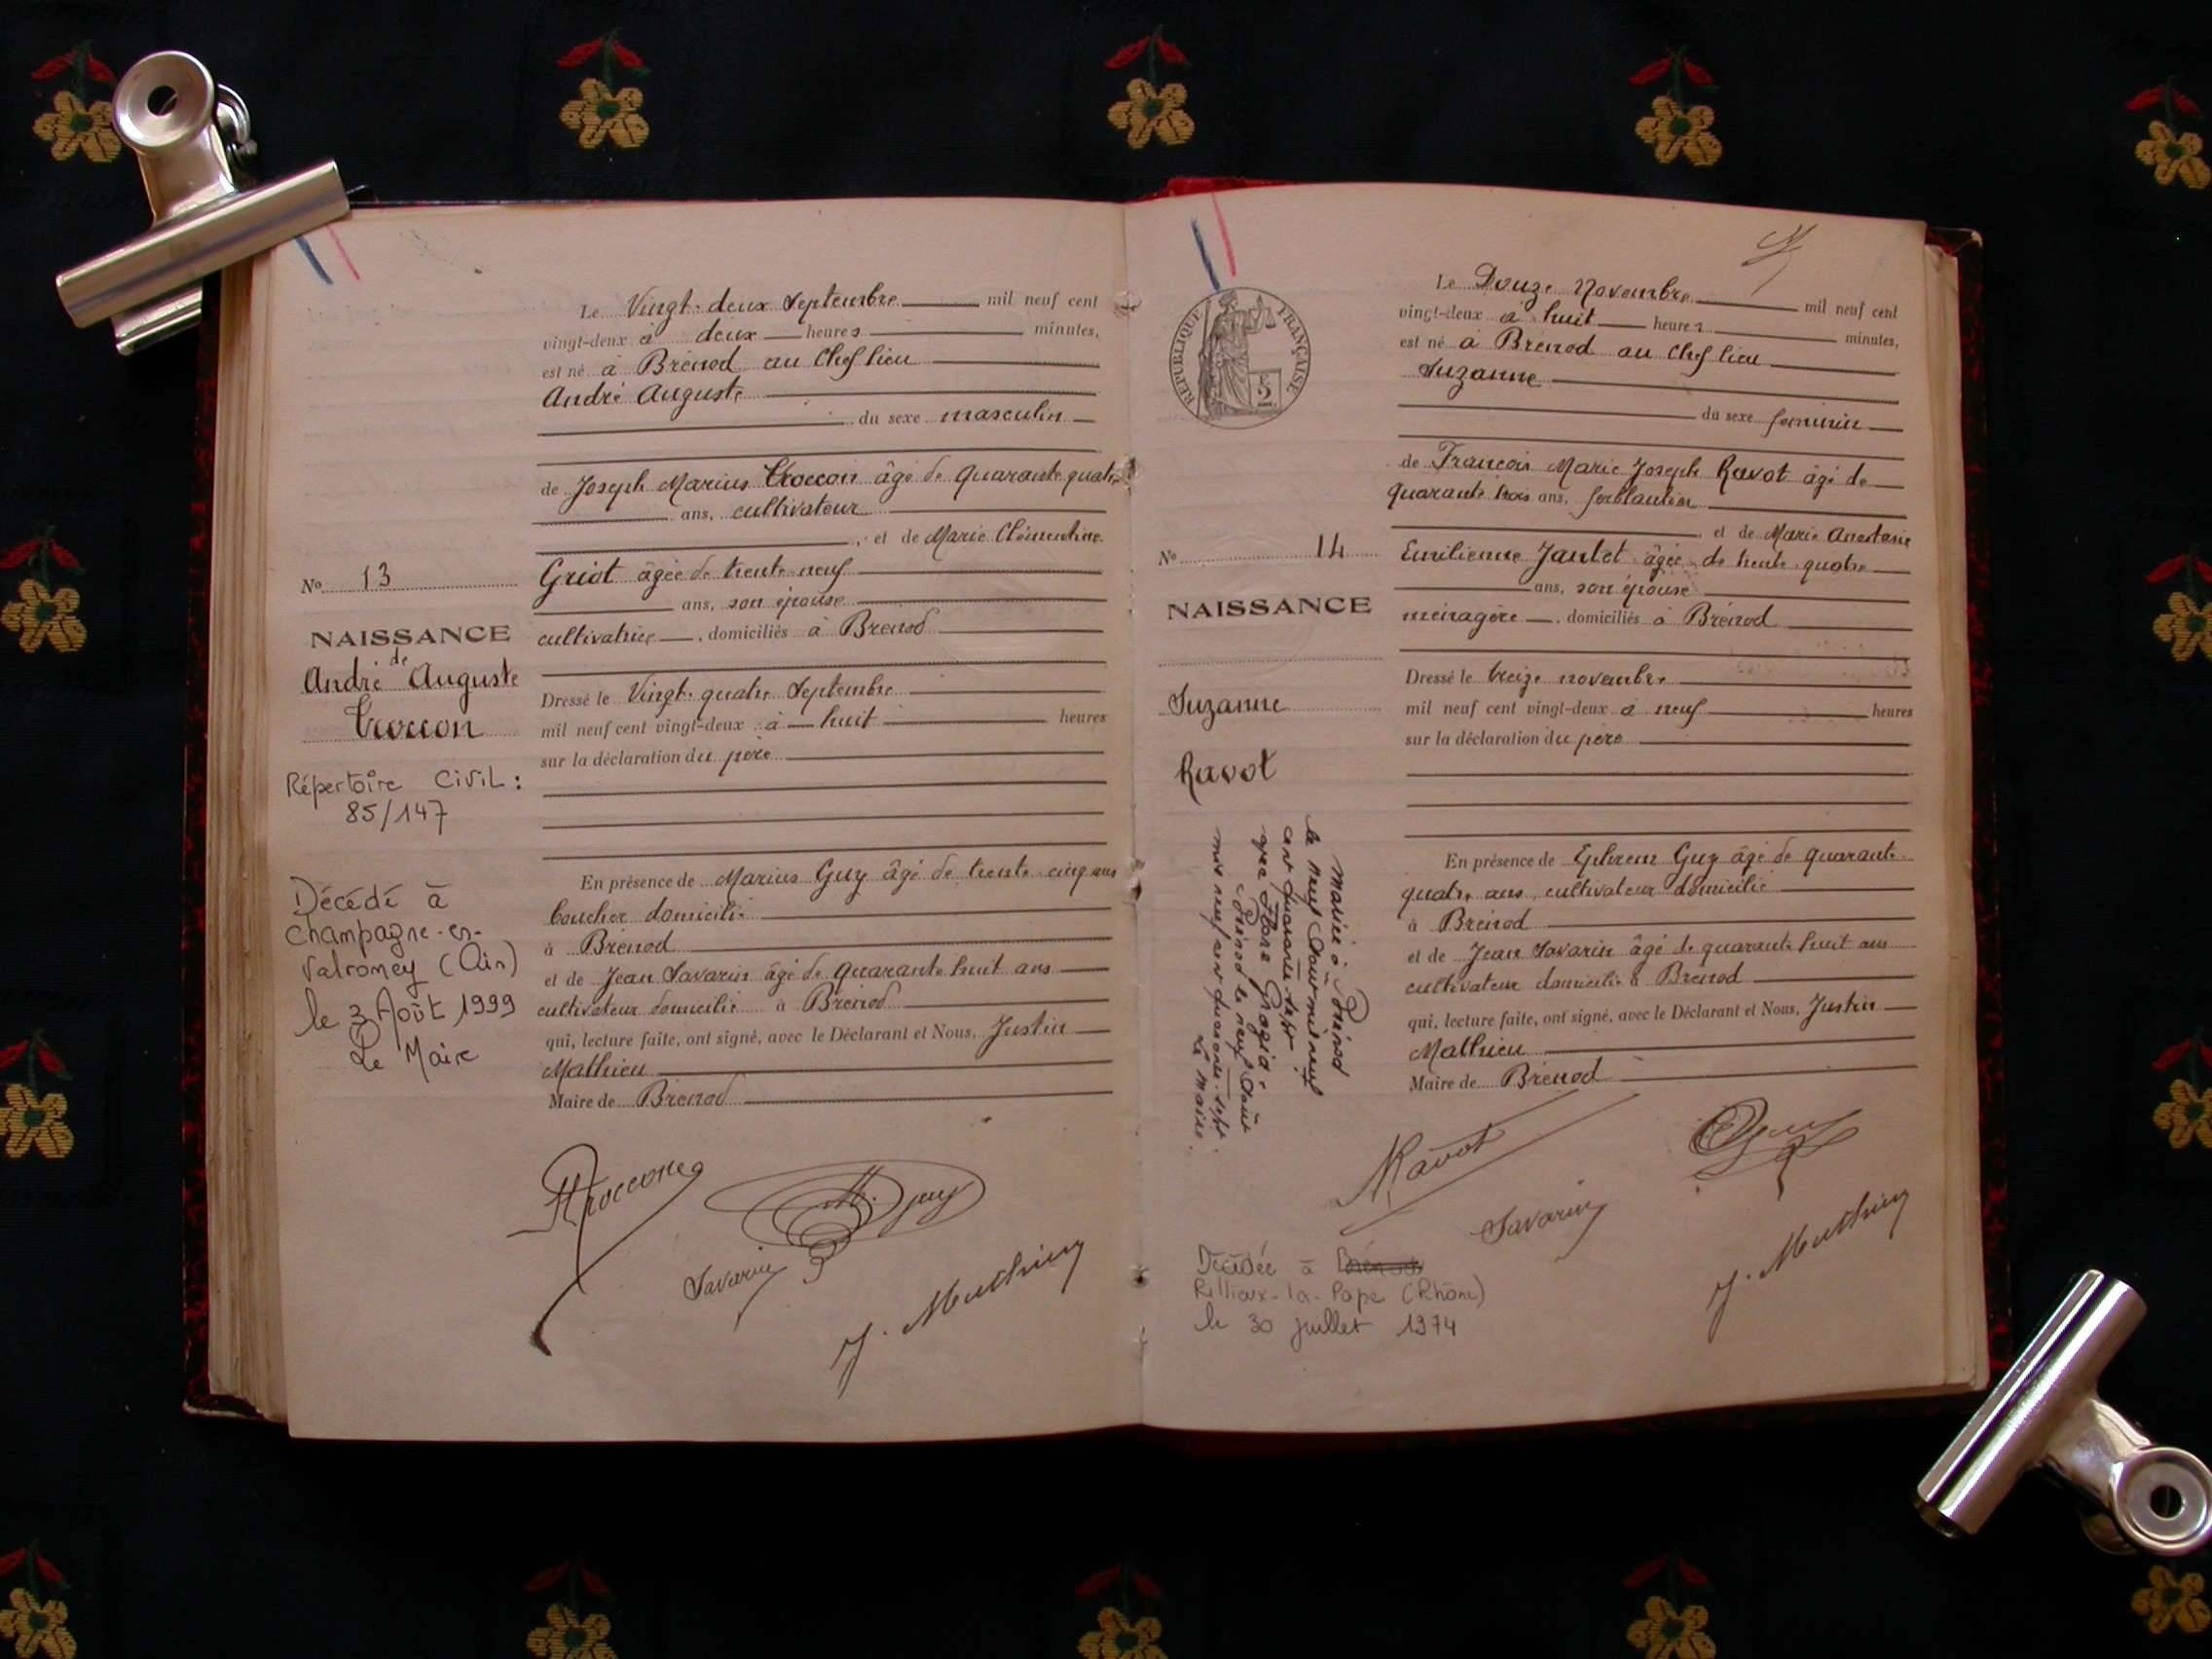 Le Vingt-deux Septembre mil neuf cent
vingt-deux à deux heures minutes,
est né à Brénod au Chef lieu
André Auguste
du sexe masculin
de Joseph Marius Troccon âgé de quarante quatre
ans, cultivateur
, et de Marie Clémentine
Griot âgée de trente-neuf
ans, son épouse
cultivatrice, domiciliés à Brénod
Dressé le Vingt-quatre Septembre
mil neuf cent vingt-deux à huit heures
sur la déclaration du père
En présence de Marius Guy âgé de trente cinq ans
boucher domicilié
à Brénod
et de Jean Savarin âgé de quarante huit ans
cultivateur domicilié à Brénod
qui, lecture faite, ont signé, avec le Déclarant et Nous, Justin
Mathieu
Maire de Brénod
No 13
NAISSANCE
de
André Auguste
Troccon
Répertoire Civil :
85/147
Décédé à
Champagne-en-
Valromey (Ain)
le 3 Août 1999
Le Maire
Troccon
M. Guy
Savarin
J. Mathieu
RÉPUBLIQUE FRANÇAISE
Le Douze Novembre mil neuf cent
vingt-deux à huit heures minutes,
est né à Brénod au Chef lieu
Suzanne
du sexe féminin
de François Marie Joseph Ravot âgé de
quarante trois ans, ferblantier
, et de Marie Anastasie
Emilienne Jantet âgée de trente-quatre
ans, son épouse
ménagère, domiciliés à Brénod
Dressé le treize novembre
mil neuf cent vingt-deux à neuf heures
sur la déclaration du père
En présence de Ephrem Guy âgé de quarante
quatre ans, cultivateur domicilié
à Brénod
et de Jean Savarin âgé de quarante huit ans
cultivateur domicilié à Brénod
qui, lecture faite, ont signé, avec le Déclarant et Nous, Justin
Mathieu
Maire de Brénod
No 14
NAISSANCE
Suzanne
Ravot
Mariée à Brénod
le neuf Août mil neuf
cent quarante-sept
avec
Brénod le neuf Août
mil neuf cent quarante-sept.
Le Maire.
Ravot
Guy
Savarin
J. Mathieu
Décédée à
Rillieux-la-Pape (Rhône)
le 30 juillet 1974